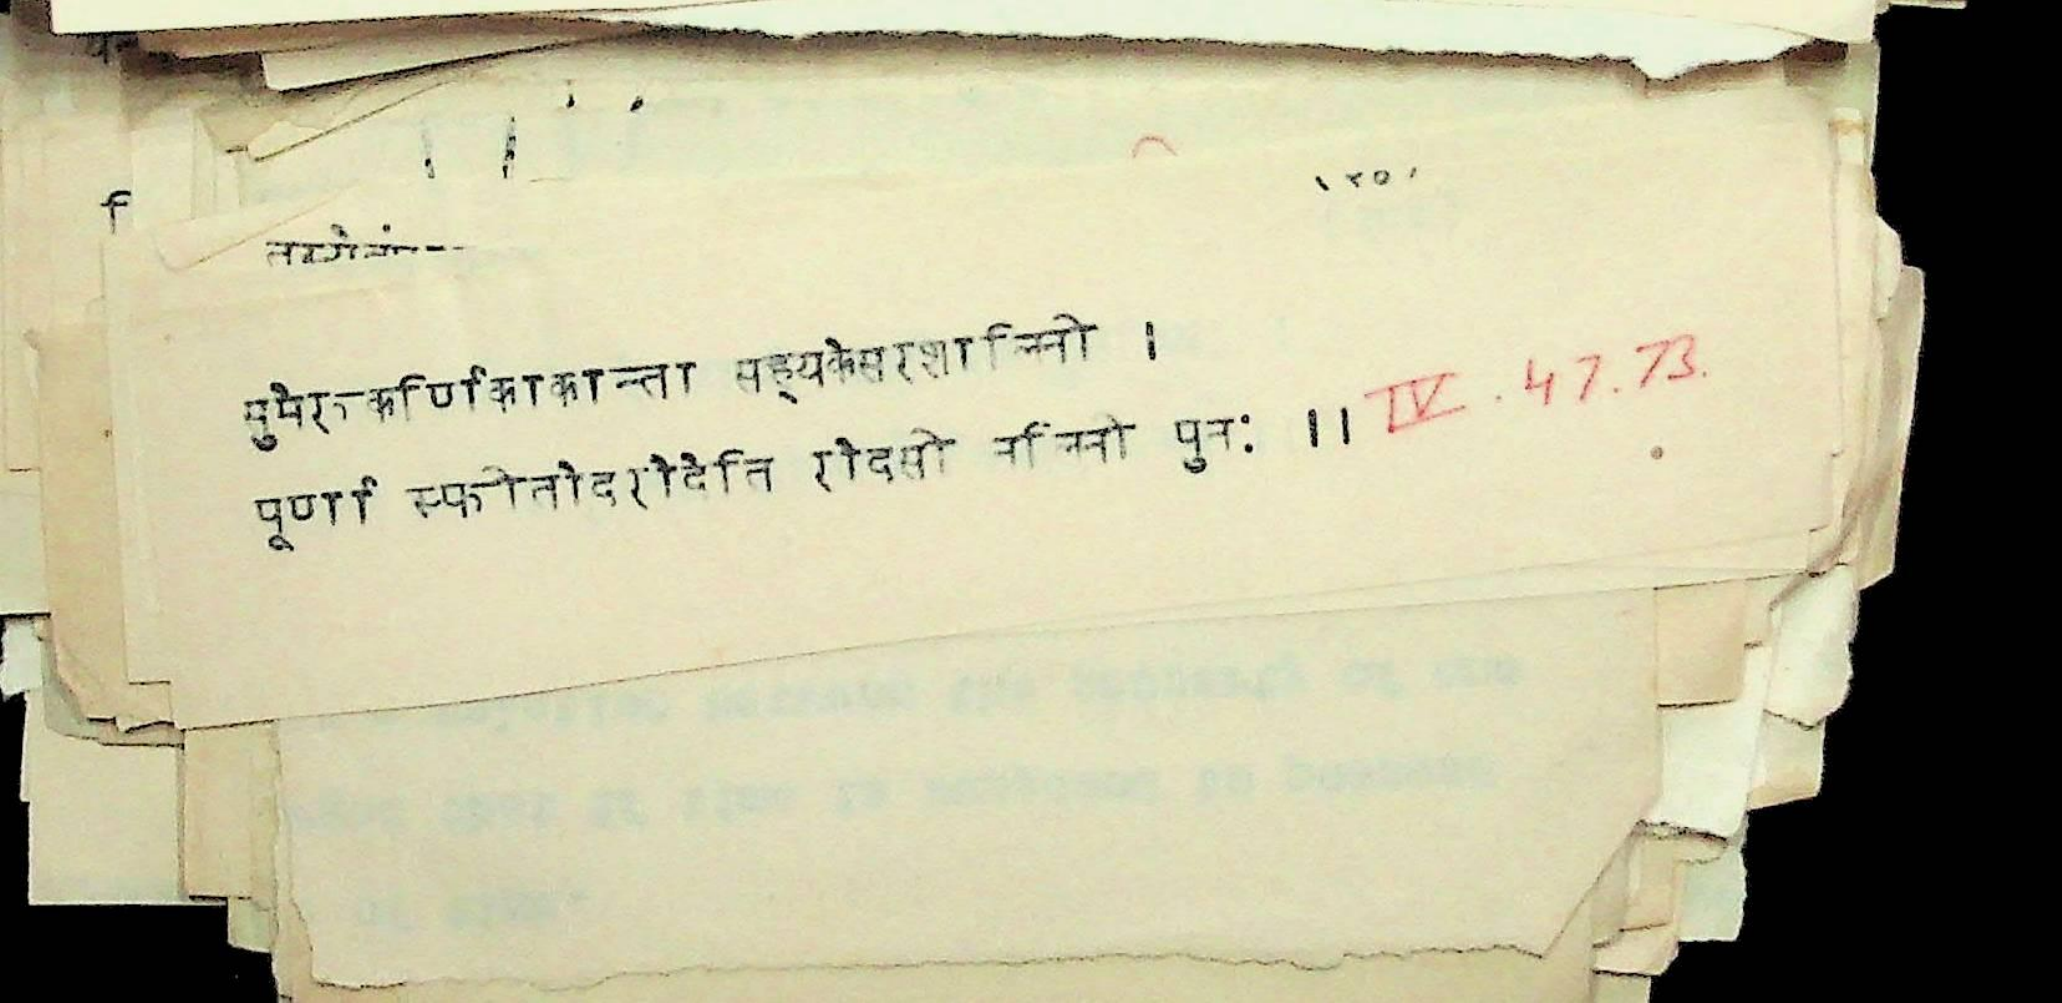 सुमेरुकर्णिकाकान्ता सह्यकेसरशालिनी ।
पूर्णा स्फीतोदरोदेति रोदसी नलिनी पुनः ॥ IV. 47. 73.